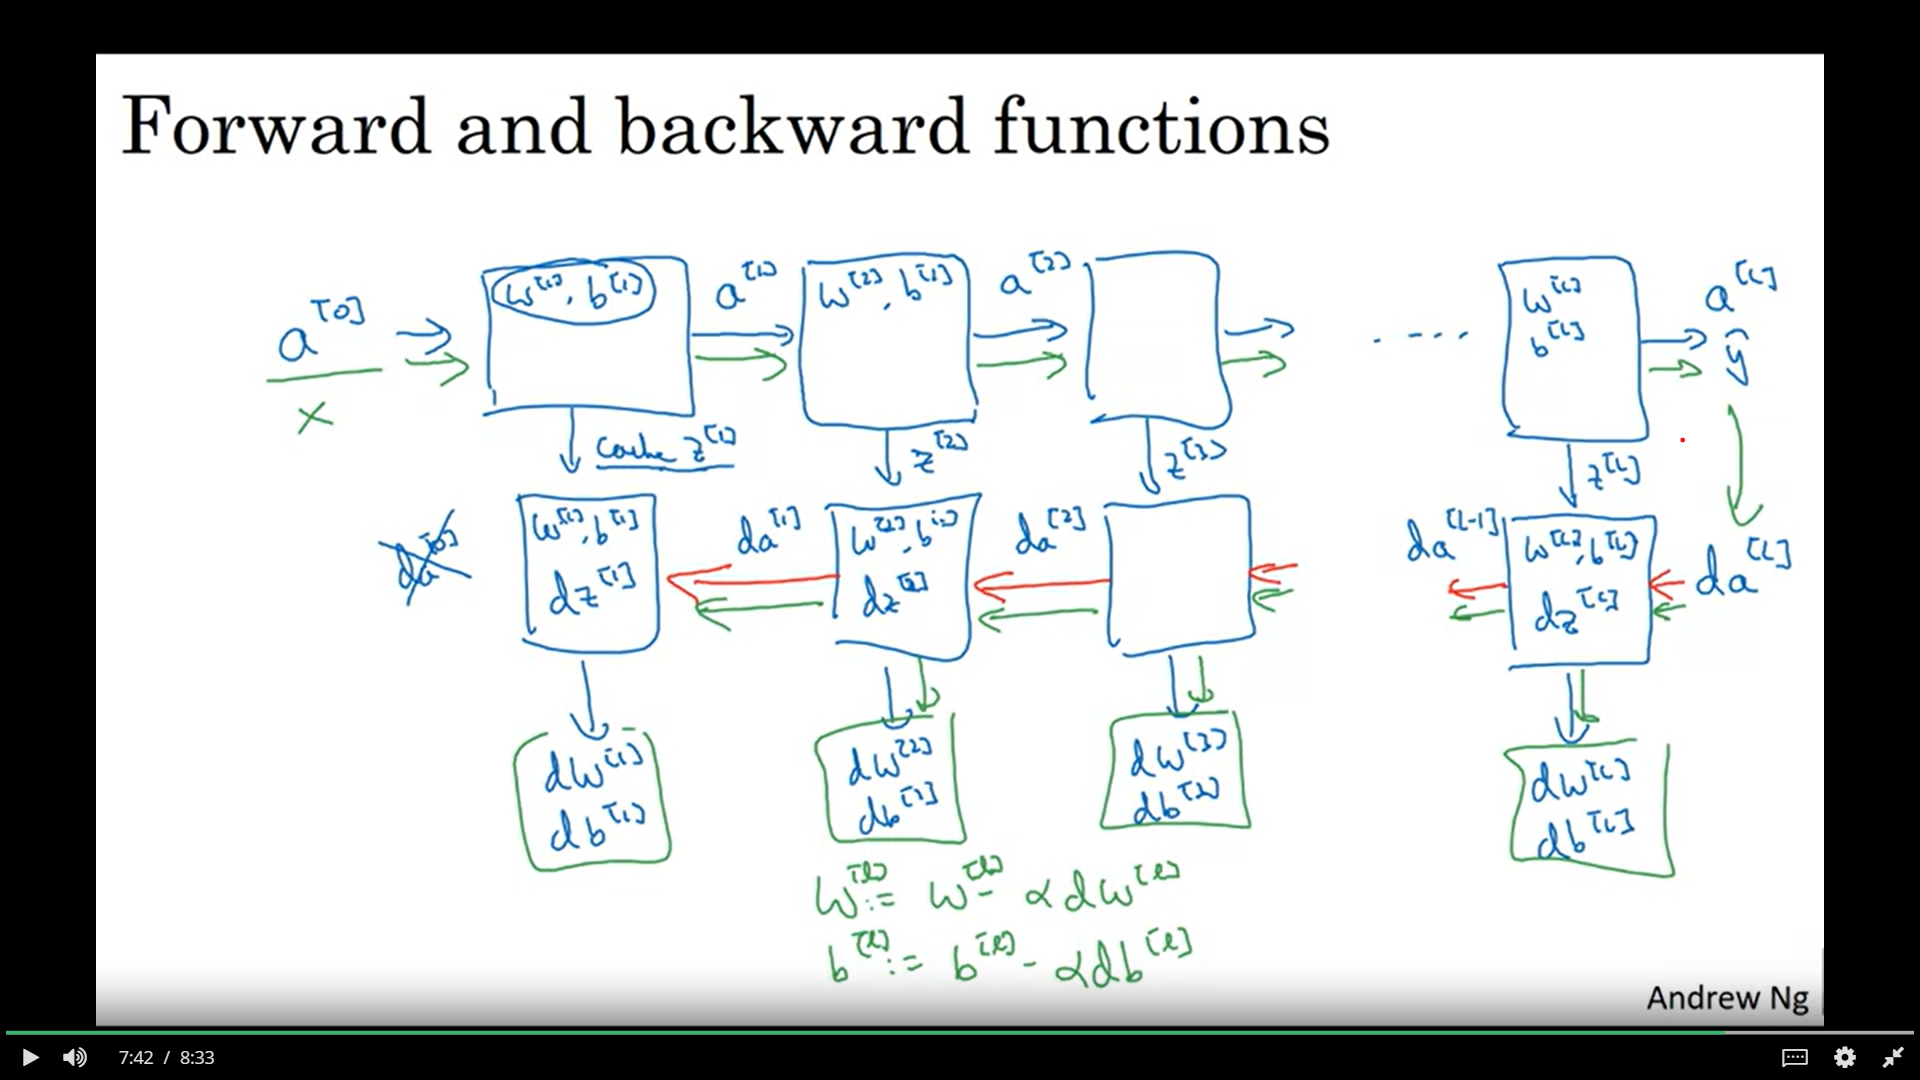 Forward and backward functions
a^[0] → w^[1], b^[1] → a^[1] → w^[2], b^[1] → a^[2] → → ---- w^[L] → a^[L]
b^[L] ŷ
x
cache z^[1] z^[2] z^[3] z^[L]
da^[0] w^[1], b^[1] da^[1] w^[2], b^[2] da^[2] da^[L-1] w^[L], b^[L] da^[L]
dz^[1] dz^[2] dz^[L]
dw^[1] dw^[2] dw^[3] dw^[L]
db^[1] db^[2] db^[3] db^[L]
w^[l] := w^[l] - αdw^[l]
b^[l] := b^[l] - αdb^[l]
Andrew Ng
7:42 / 8:33